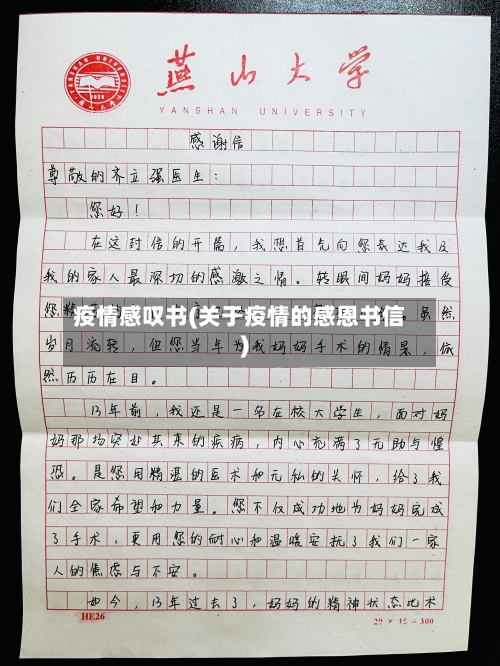 燕山大学
YANSHAN UNIVERSITY
感谢信
尊敬的齐立强医生：
您好！
在这封信的开篇，我想首先向您表达我及
我的家人最深切的感激之情。转眼间妈妈接受
您精
虽然
疫情感叹书(关于疫情的感恩书信
)
岁月流转，但您当年为我妈妈手术的情景，依
然历历在目。
13年前，我还是一名在校大学生，面对妈
妈那场突如其来的疾病，内心充满了无助与惶
恐。是您用精湛的医术和无私的关怀，给了我
们全家希望和力量。您不仅成功地为妈妈完成
了手术，更用您的耐心和温暖安抚了我们一家
人的焦虑与不安。
如今，13年过去了，妈妈的精神状态比术
HE26
20 × 15 = 300